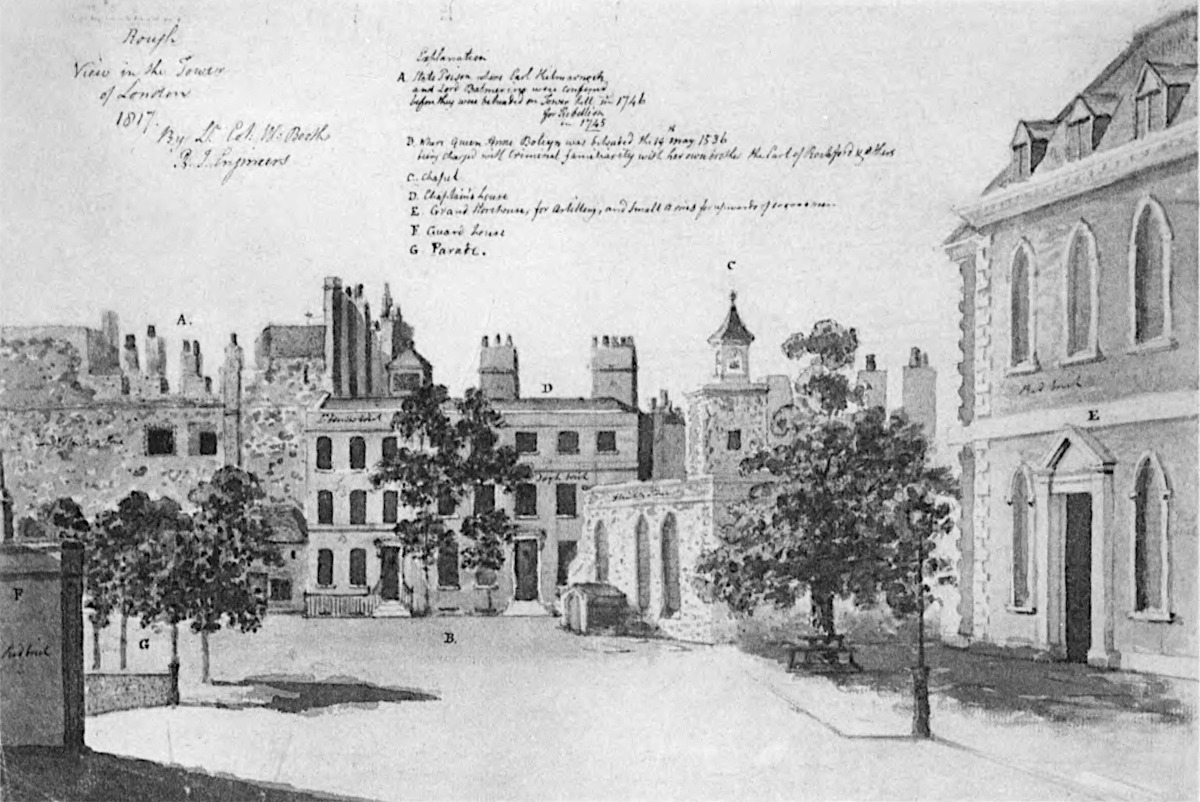 Rough
View in the Tower
of London
1817.
By Lt. Col. Wm. Booth
R. I. Engineers
Explanation
A. State Prison where Earl Kilmarnock
and Lord Balmerino were confined
before they were beheaded on Tower hill in 1746
for Rebellion
in 1745
B. Where Queen Anne Boleyn was beheaded the 19 May 1536
being charged with Criminal familiarity with her own brother the Earl of Rochford & others
C. Chapel
D. Chaplain's house
E. Grand Storehouse, for Artillery, and Small Arms for upwards of men
F. Guard house
G. Parade.
C
A.
D
E
Red brick
F
Red brick
G
B.